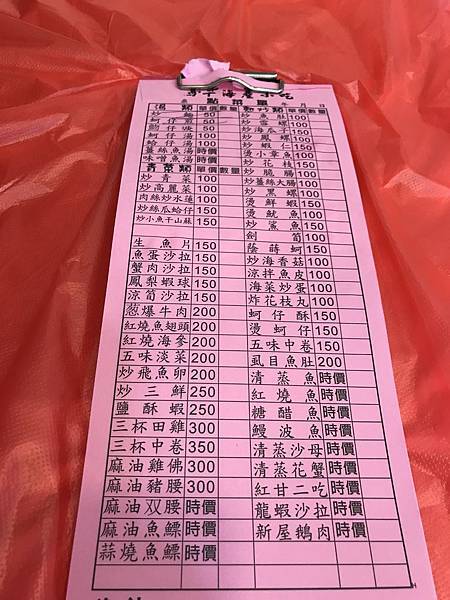 點菜單
年 月 日
湯類 單價 數量
炒麵 50
蚵仔煎 50
蚵仔湯 100
蛤仔湯 100
薑絲魚湯 時價
味噌魚湯 時價
青菜類 單價 數量
炒青菜 100
炒高麗菜 100
肉絲炒水蓮 100
炒絲瓜蛤仔 150
炒小魚干山蘇 150
生魚片 150
魚蛋沙拉 150
蟹肉沙拉 150
鳳梨蝦球 150
涼筍沙拉 150
葱爆牛肉 200
紅燒魚翅頭 200
紅燒海參 200
五味淡菜 200
炒飛魚卵 200
炒三鮮 250
鹽酥蝦 250
三杯田雞 300
三杯中卷 350
麻油雞佛 300
麻油豬腰 300
麻油双腰 時價
麻油魚鰾 時價
蒜燒魚鰾 時價
熱炒類 單價 數量
炒魚肚 100
炒海瓜子 100
炒鳳螺 100
炒蝦仁 100
燙小章魚 100
炒花枝 100
炒脆腸 100
炒薑絲大腸 100
炒黑螺 100
燙鮮蝦 150
燙魷魚 100
炒鯊魚 150
劍筍 100
蔭蒔蚵 150
炒海香菇 100
涼拌魚皮 100
海菜炒蛋 100
炸花枝丸 100
蚵仔酥 150
燙蚵仔 150
五味中卷 150
虱目魚肚 200
清蒸魚 時價
紅燒魚 時價
糖醋魚 時價
鰻波魚 時價
清蒸沙母 時價
清蒸花蟹 時價
紅甘二吃 時價
龍蝦沙拉 時價
新屋鵝肉 時價